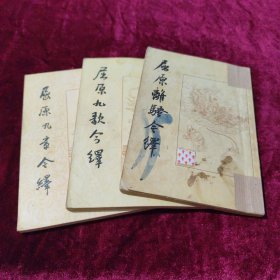 屈原九章今繹
屈原九歌今繹
屈原離騷今繹